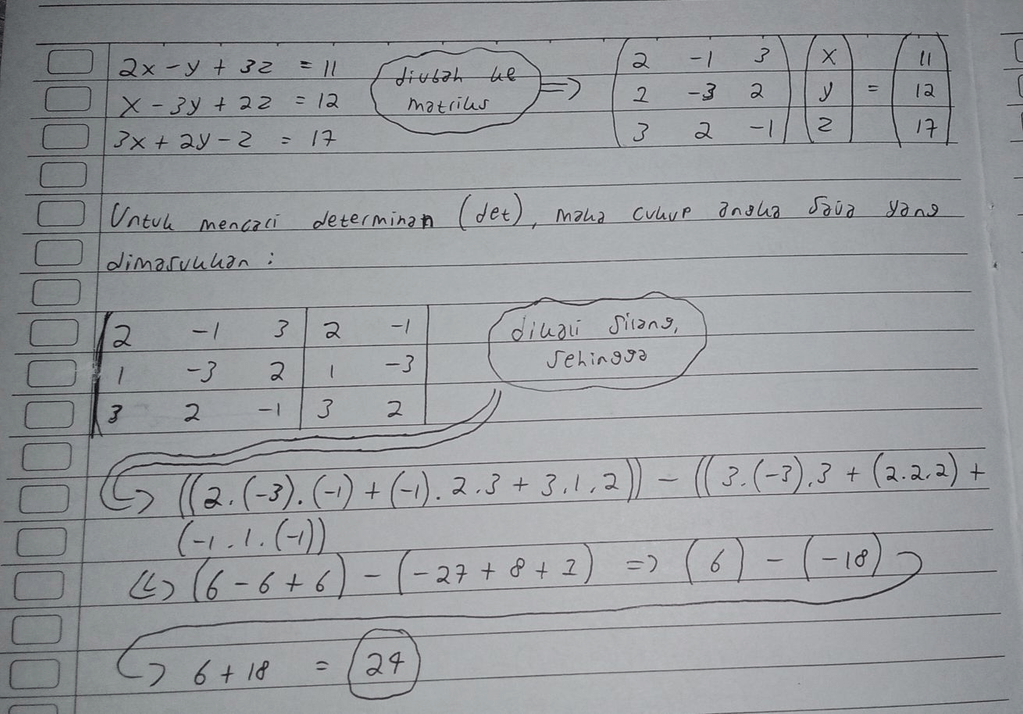 2x - y + 3z = 11
x - 3y + 2z = 12
3x + 2y - z = 17
diubah ke
matriks
=>
2 -1 3
1 -3 2
3 2 -1
x
y
z
=
11
12
17
Untuk mencari determinan (det), maka cukup angka saja yang
dimasukkan :
2 -1 3 2 -1
1 -3 2 1 -3
3 2 -1 3 2
dikali silang,
sehingga
((2.(-3).(-1) + (-1).2.3 + 3.1.2)) - ((3.(-3).3 + (2.2.2) +
(-1.1.(-1))
(6 - 6 + 6) - (-27 + 8 + 1) => (6) - (-18)
6 + 18 = 24